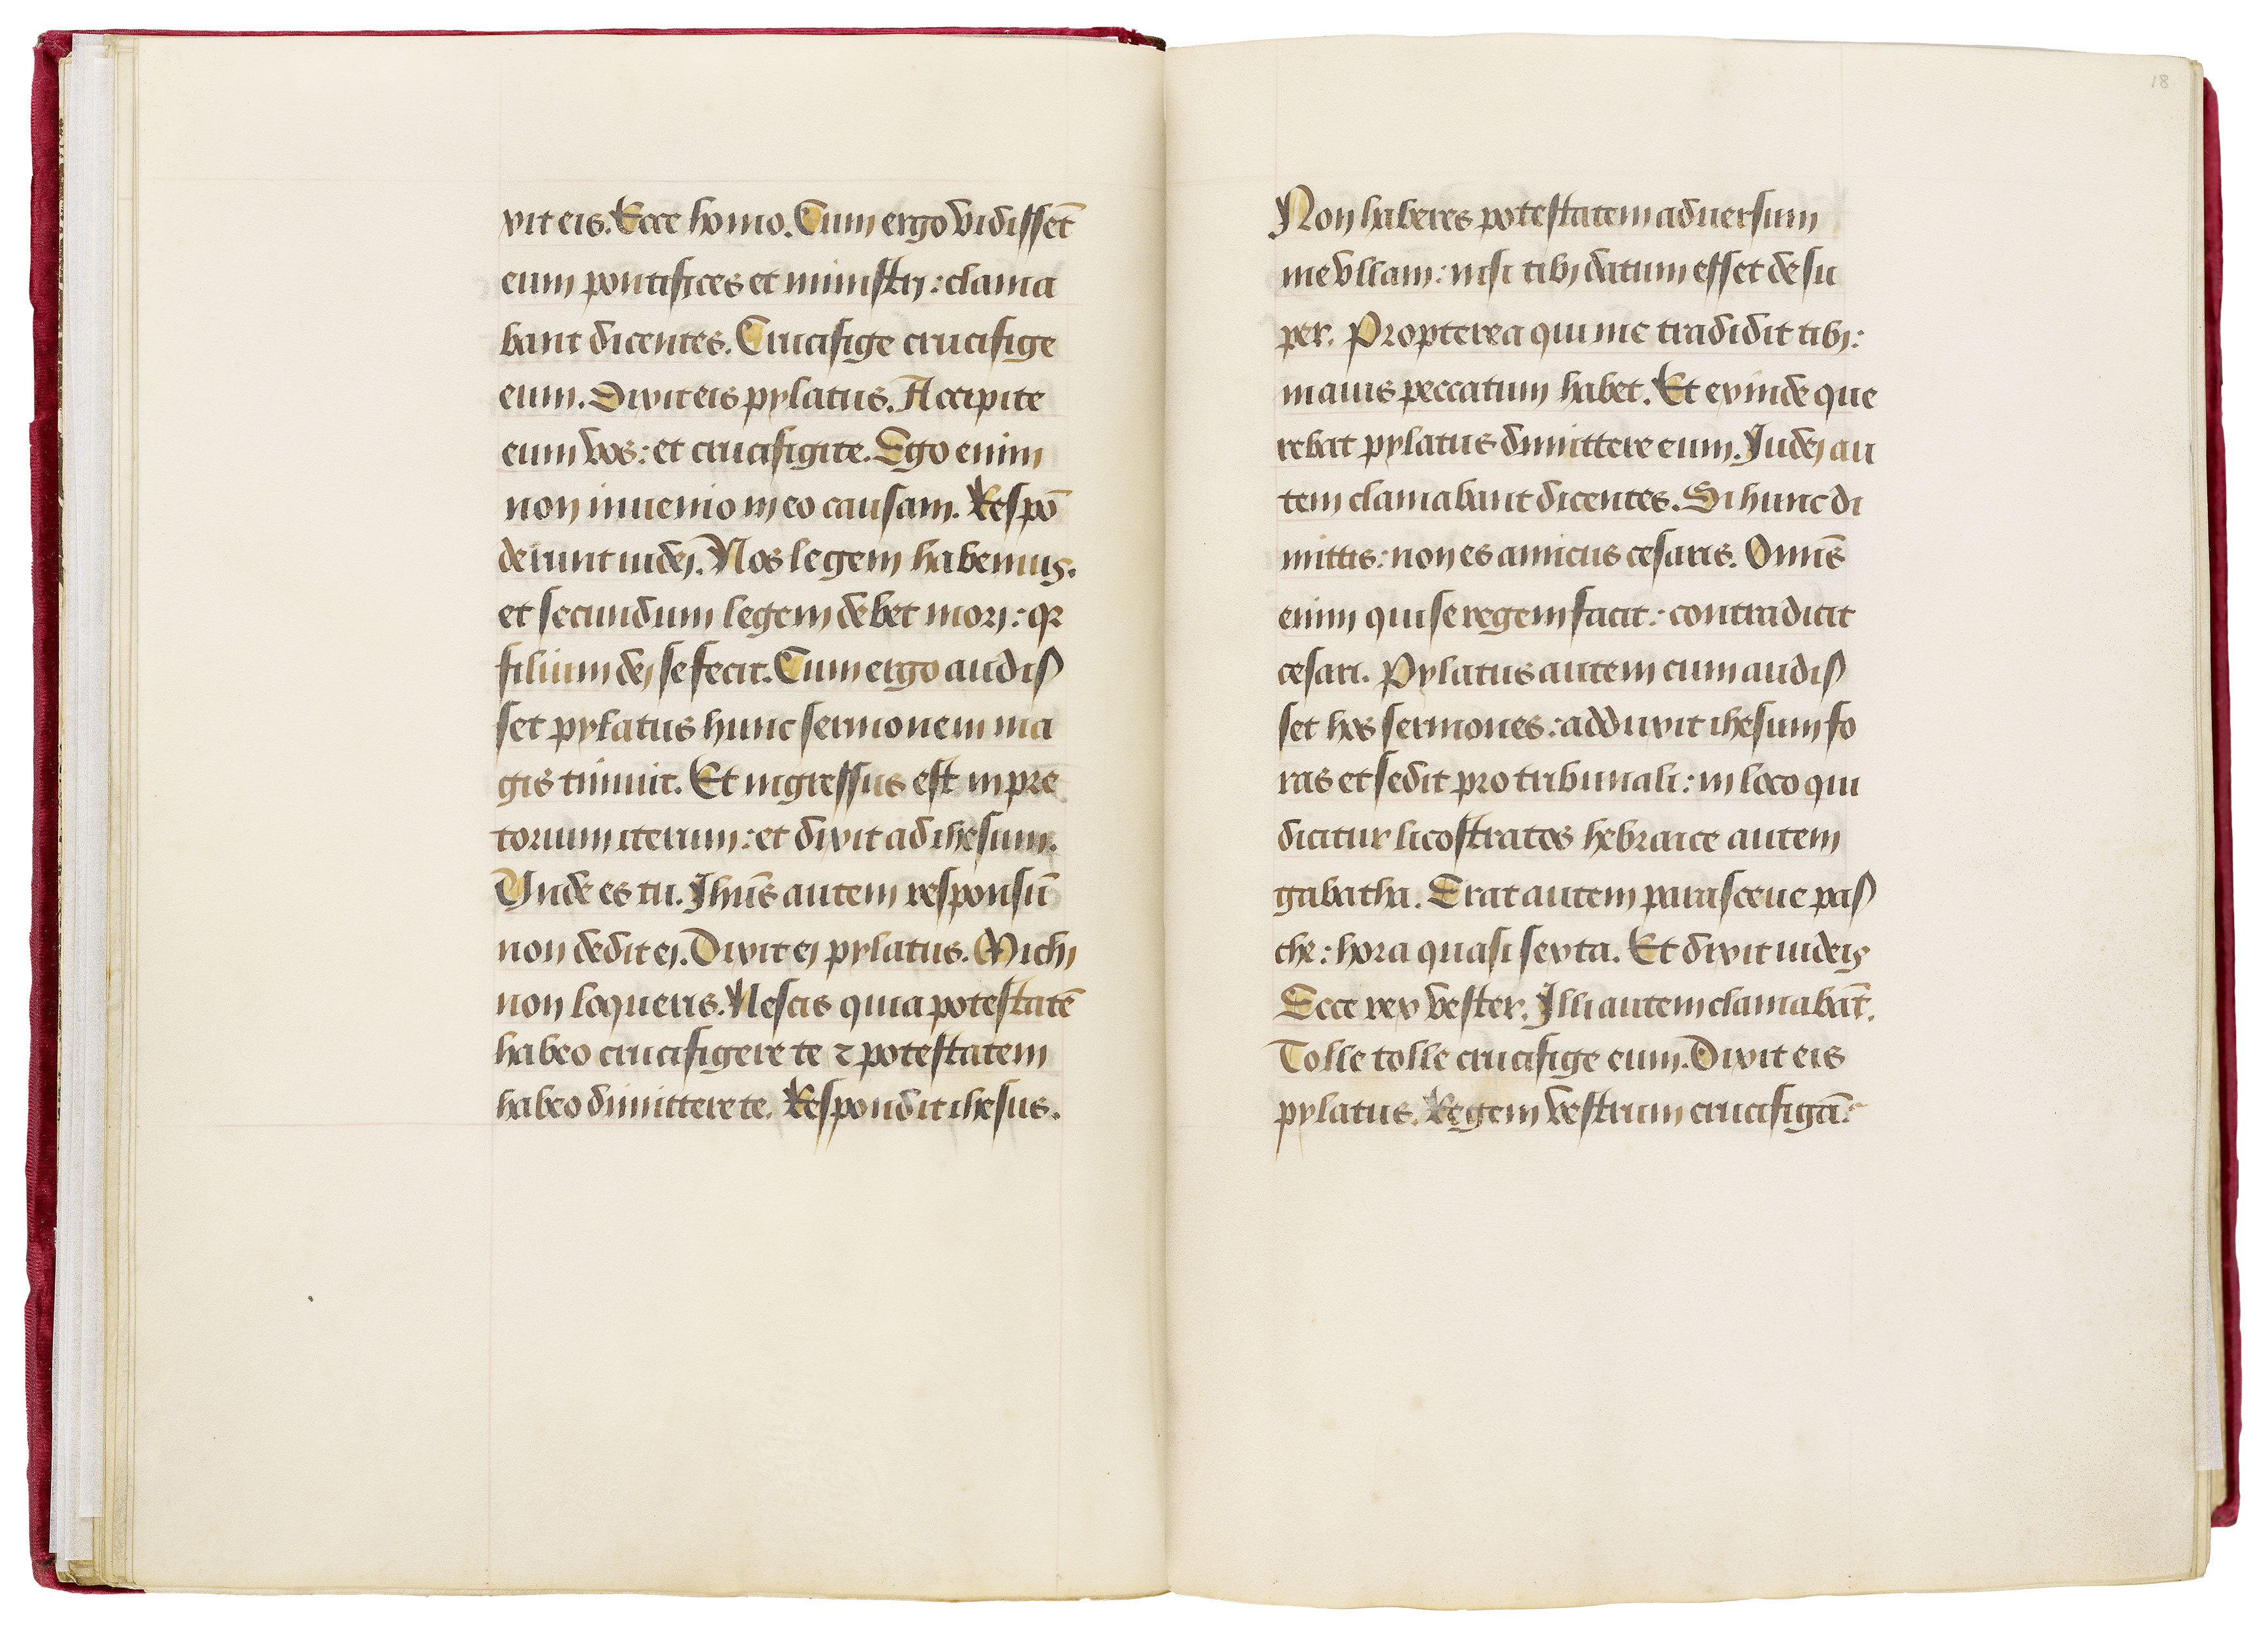 xit eis. Ecce homo. Cum ergo vidissēt
eum pontifices et ministrj: clama
bant dicentes. Crucifige crucifige
eum. Dixit eis pylatus. Accipite
eum vos: et crucifigite. Ego enim
non inuenio in eo causam. Respō
derunt iudej. Nos legem habemus.
et secundum legem debet morj: qr
filium dej se fecit. Cum ergo audis
set pylatus hunc sermonem ma
gis timuit. Et ingressus est in pre
torium iterum: et dixit ad ihesum.
Unde es tu. Jhūs autem responsū
non dedit ej. Dixit ej pylatus. Michj
non loqueris. Nescis quia potestatē
habeo crucifigere te ⁊ potestatem
habeo dimittere te. Respondit ihesus.
18
Non haberes potestatem aduersum
me vllam: nisi tibj datum esset desu
per. Propterea qui me tradidit tibj:
maius peccatum habet. Et exinde que
rebat pylatus dimittere eum. Judej au
tem clamabant dicentes. Si hunc di
mittis: non es amicus cesaris. Omīs
enim qui se regem facit: contradicit
cesari. Pylatus autem cum audis
set hos sermones: adduxit ihesum fo
ras et sedit pro tribunali: in loco qui
dicitur licostratos hebraice autem
gabatha. Erat autem parasceue pas
che: hora quasi sexta. Et dixit iudeis
Ecce rex vester. Illi autem clamabāt.
Tolle tolle crucifige eum. Dixit eis
pylatus. Regem vestrum crucifigā: